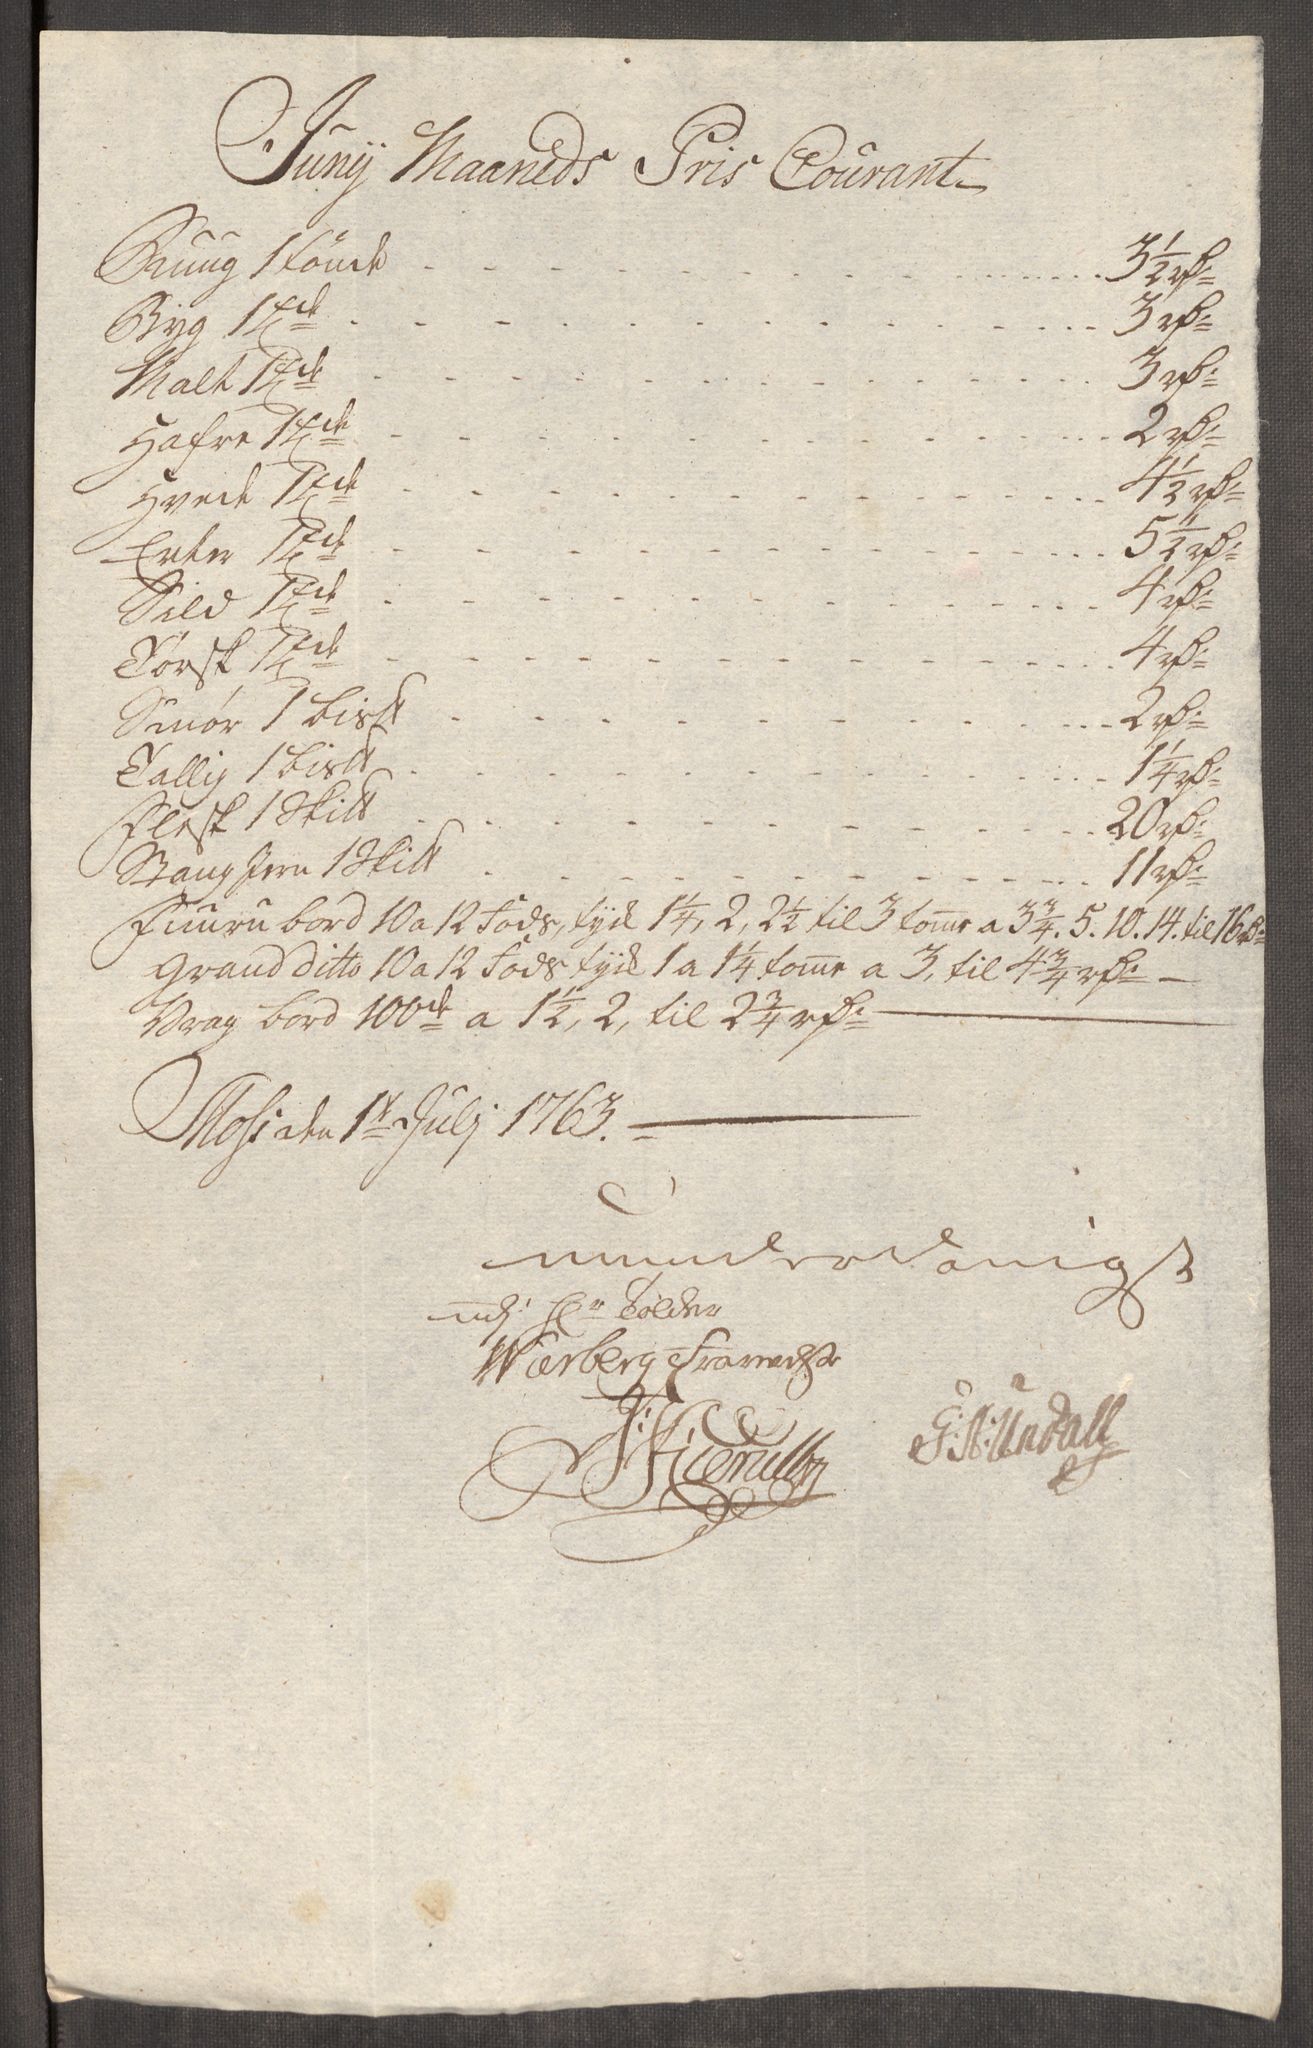 Junij Maaneds Pris Courant
Ruug 1 tönde 3½ rd:
Byg 1 tde 3 rd:
Malt 1 tde 3 rd:
Hafre 1 tde 2 rd:
Hvede 1 tde 4½ rd:
Erter 1 tde 5½ rd:
Sild 1 tde 4 rd:
Torsk 1 tde 4 rd:
Smør 1 bis℔ 2 rd:
Tallig 1 bis℔ 1¼ rd:
Flesk 1 Ski℔ 20 rd:
Stang Jern 1 Ski℔ 11 rd:
Fuuru bord 10 a 12 fods, tyk 1¼, 2, 2½ til 3 tomr a 3¾. 5. 10. 14. til 16 rd:
Grand ditto 10 a 12 fods tyk 1 a 1¼ tomr a 3, til 4¾ rd:
Vrag bord 100de a 1½, 2, til 2¾ rd:
Moss den 1t Julj 1763.
underdanigst
Hr Tolder
Wærbergs
G: N: Undall